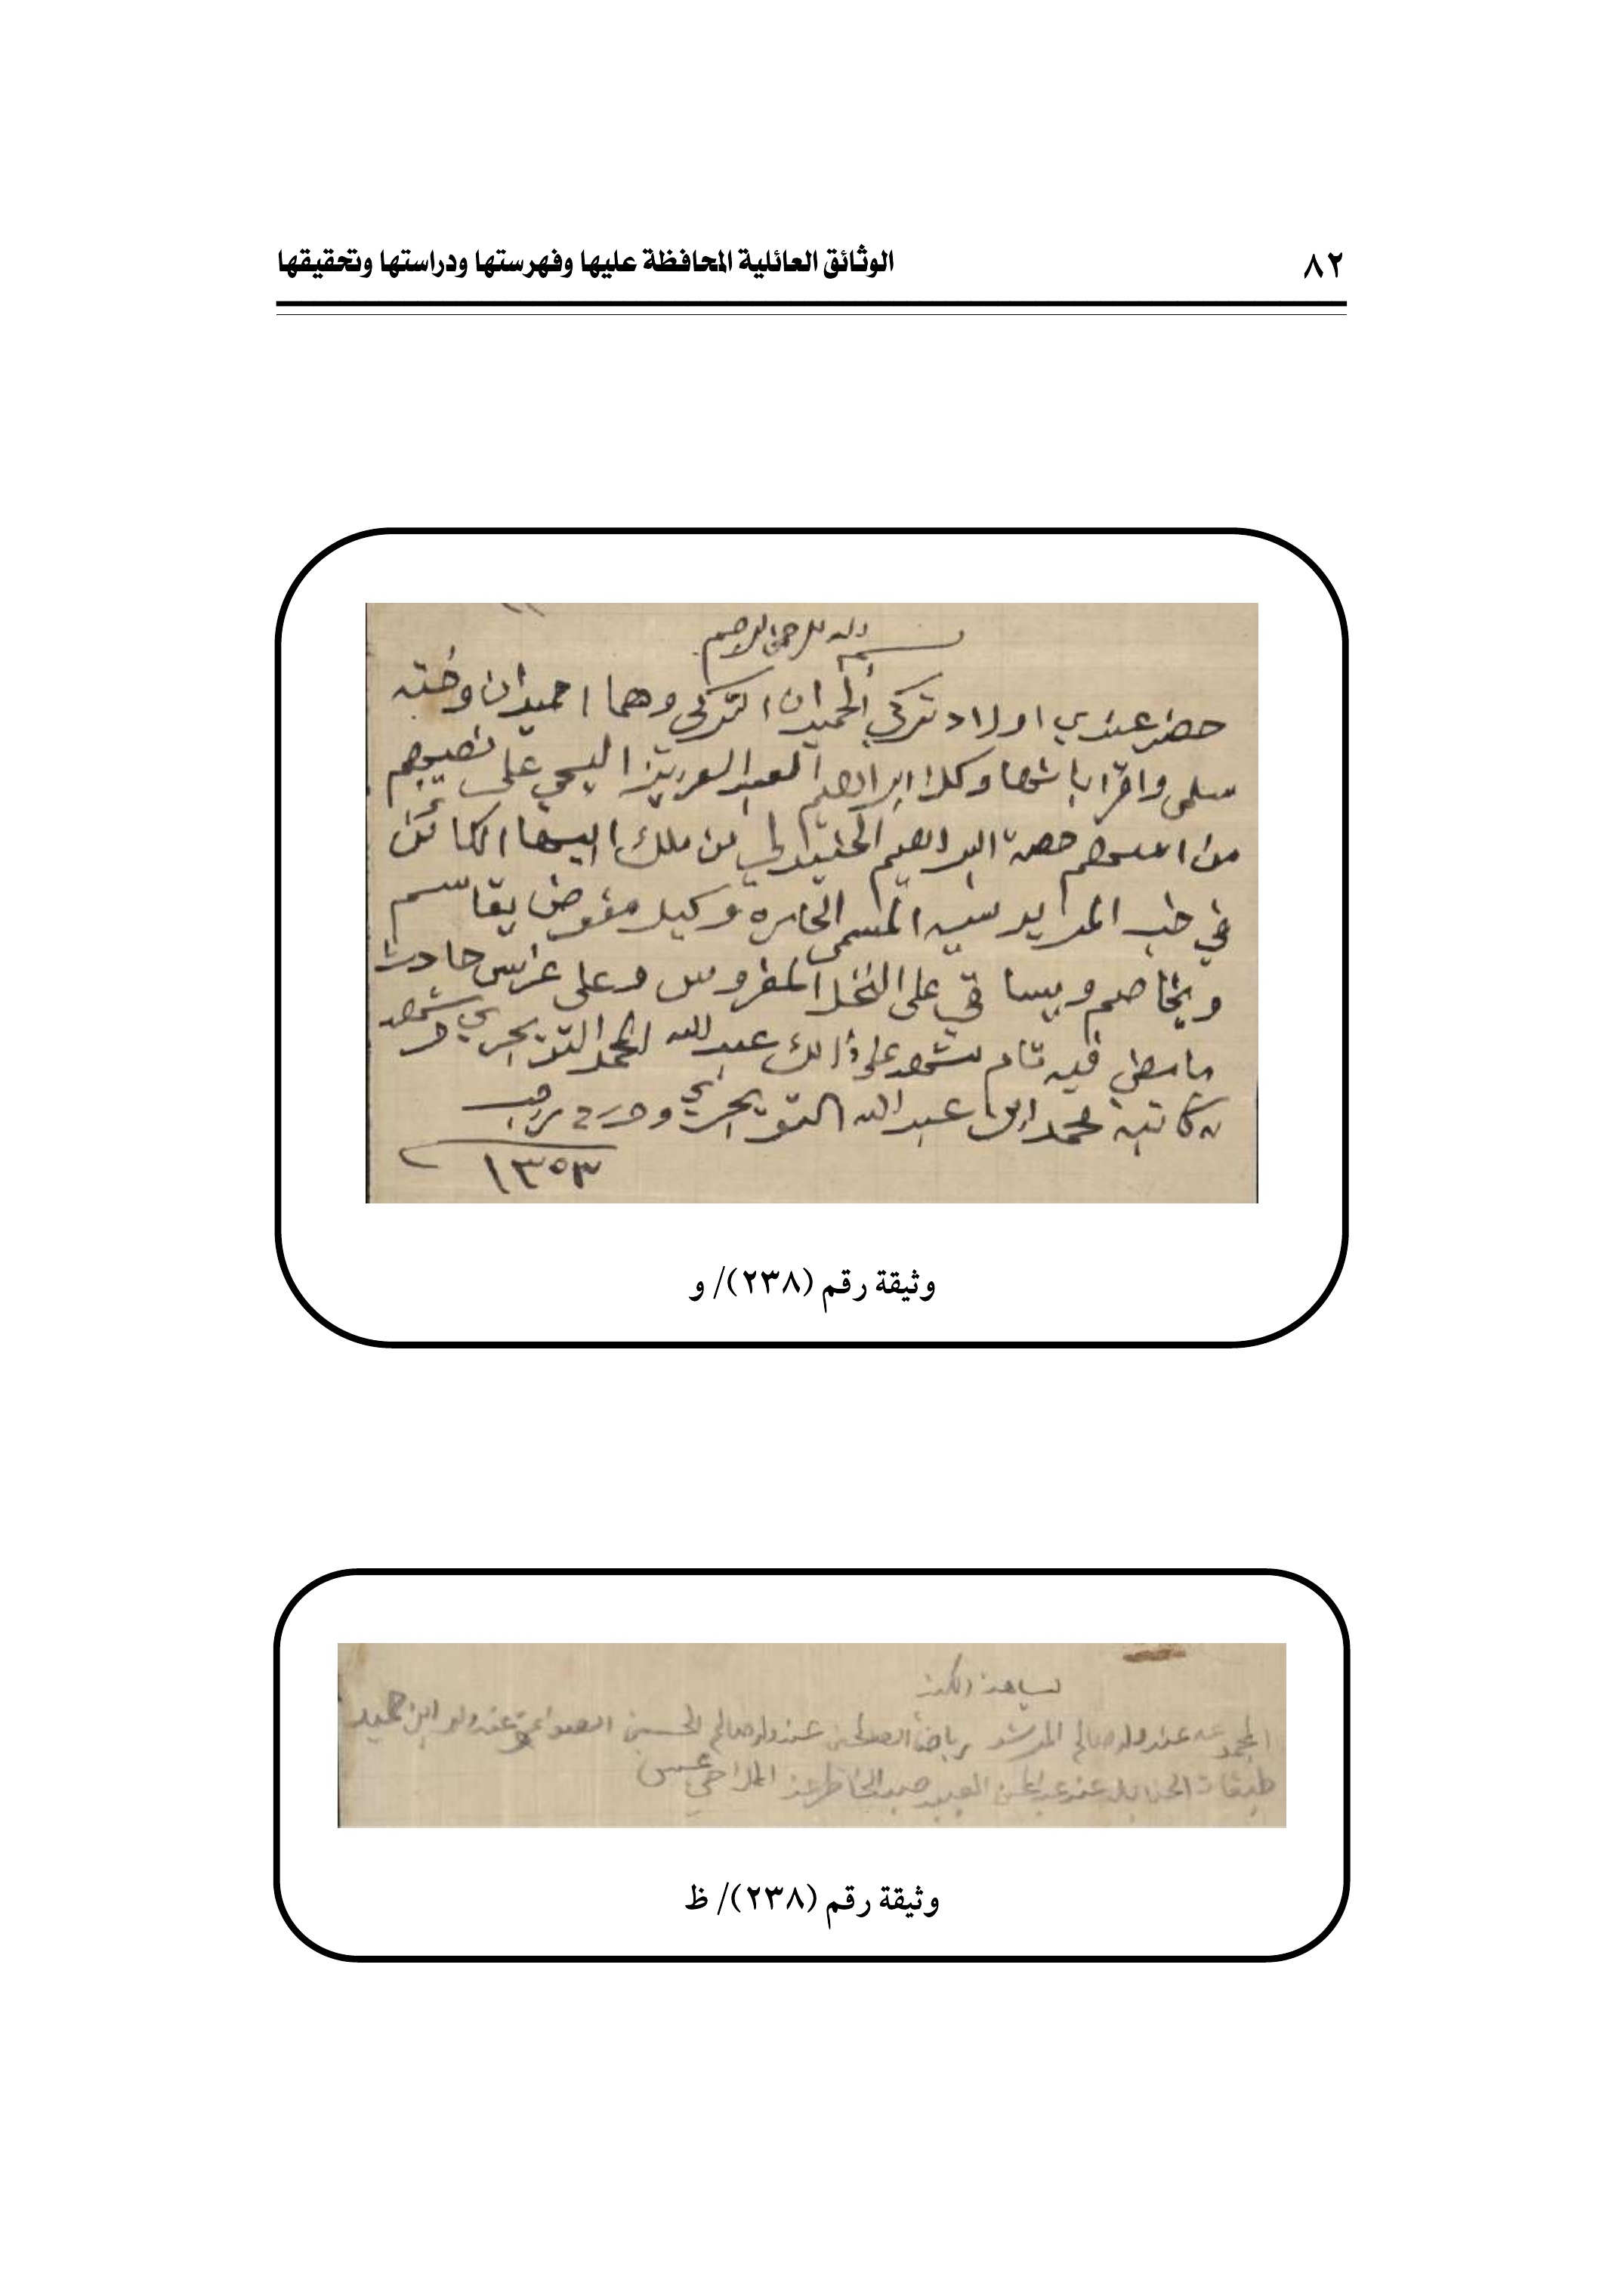 ٨٢
الوثائق العائلية المحافظة عليها وفهرستها ودراستها وتحقيقها
بسم الله الرحمن الرحيم
حضر عندي اولاد تركي الحميدان التركي وهما احميدان وخته
سلمى واقرا باشها وكلا ابراهيم العبد العزيز اليحي على نصيبهم
من امهم حصة البراهيم الحنيطي من ملك ابيها الكائن
في خب المسمى الحاره وكيل مفوض يقاسم
ويخاصم ويساقي على النخل المغروس وعلى غرس حادث
ما مضي فيه تام شهد على ذالك عبد الله المحمد التويجري وشهد
به كاتبه محمد ابن عبد الله التويجري وحرر ٢ رجب
١٣٥٣
وثيقة رقم (٢٣٨)/ و
عند ولد صالم المرشد رياض الصالحين عند ولد صالم الحسين الصواعق عند ولد ابن حميد
طبقات الحنابله عند عبد المحسن العبيد صيد الخاطر عند
وثيقة رقم (٢٣٨)/ ظ